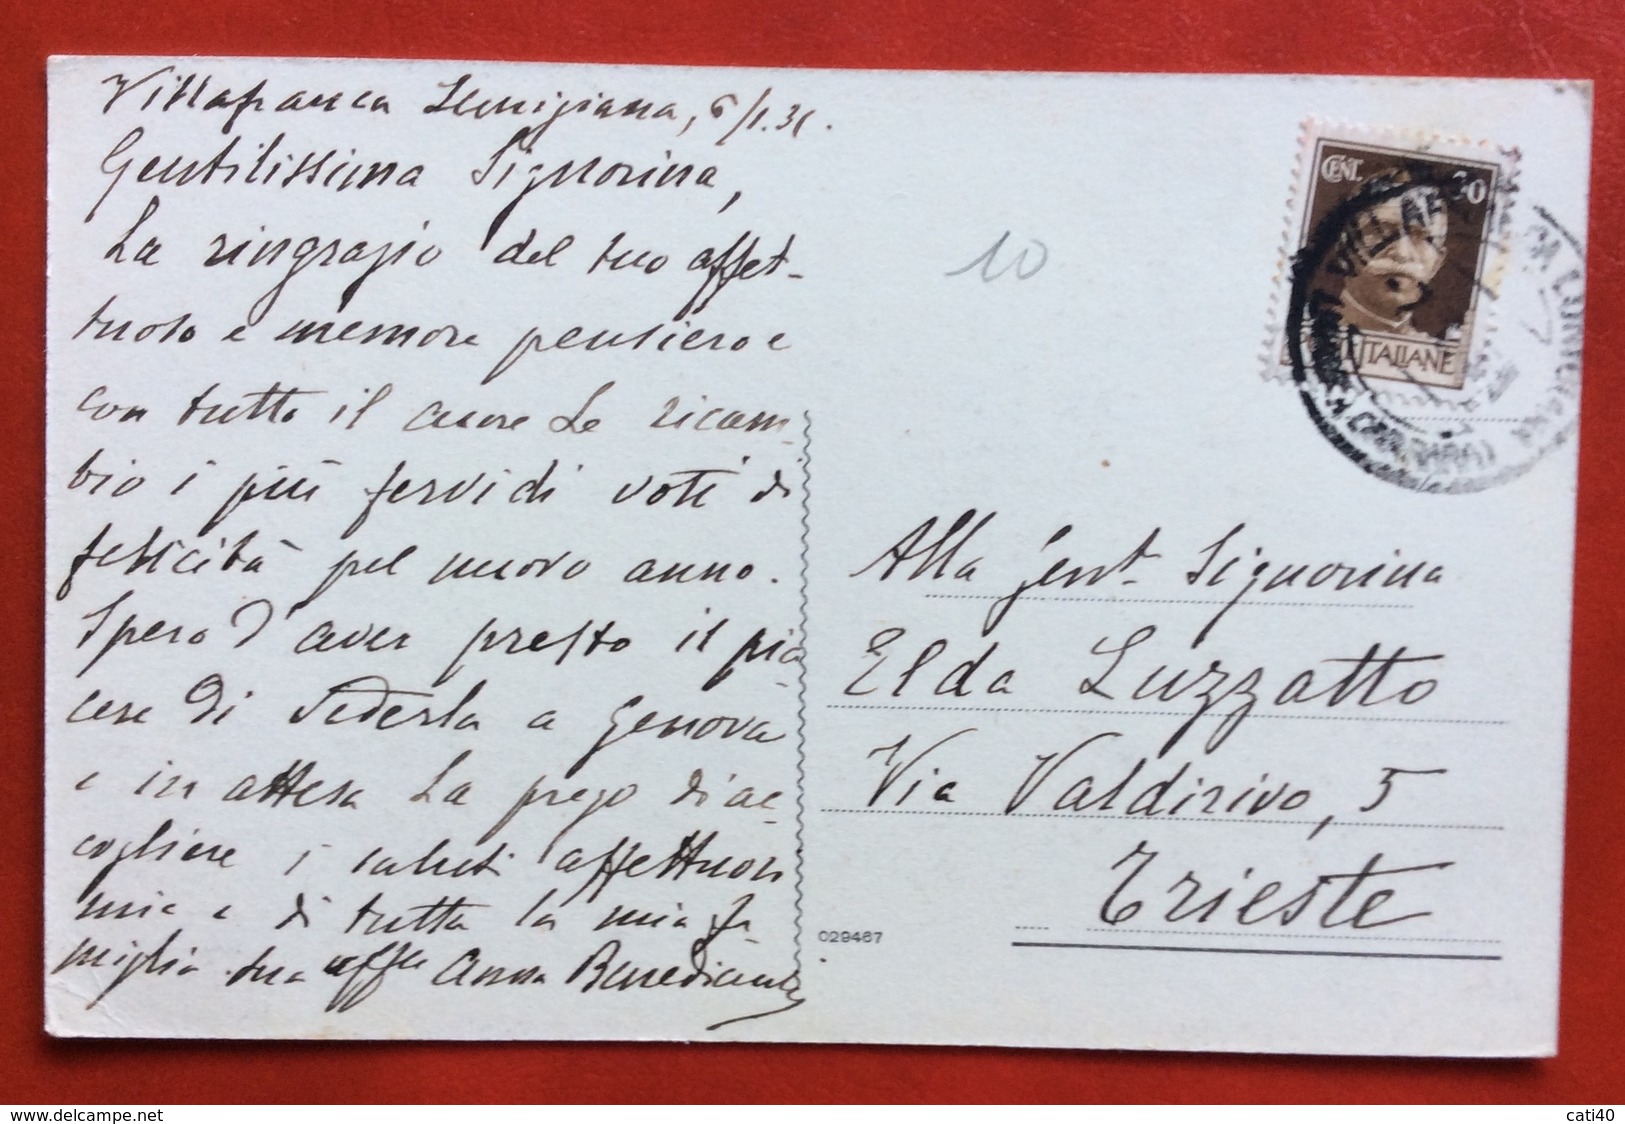 Villafranca Lunigiana, 6/1.31.
Gentilissima Signorina,
La ringrazio del suo affet-
tuoso e memore pensiero e
con tutto il cuore Le ricam-
bio i più fervidi voti di
felicità pel nuovo anno.
Spero d'aver presto il pia
cere di vederla a Genova
e in attesa La prego di ac-
cogliere i saluti affettuosi
miei e di tutta la mia fa-
miglia. Sua aff.ma Anna
10
CENT. 30
ITALIANE
Alla Gent. Signorina
Elda Luzzatto
Via Valdirivo, 5
Trieste
029467
delcampe.net
cati40